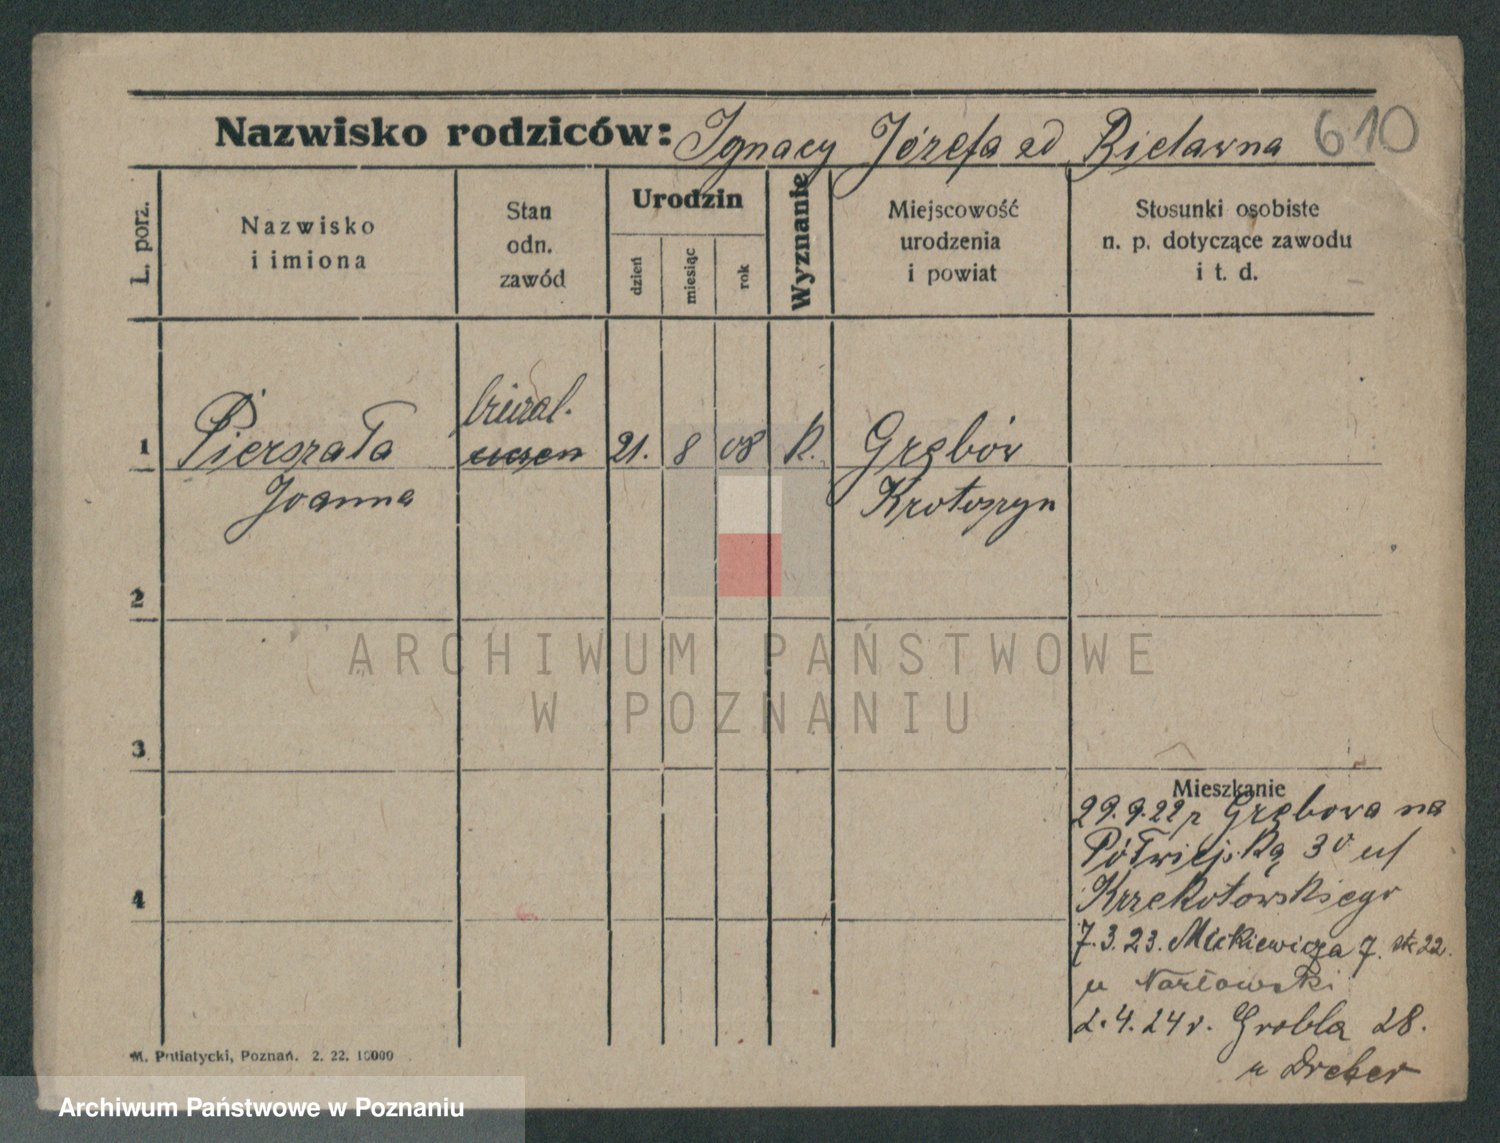 Nazwisko rodziców: Ignacy Józefa zd Bielawna 610
L. porz.
Nazwisko
i imiona
Stan
odn.
zawód
Urodzin
dzień
miesiąc
rok
Wyznanie
Miejscowość
urodzenia
i powiat
Stosunki osobiste
n. p. dotyczące zawodu
i t. d.
1 Pierszała 21. 8 08 k. Grębów
Joanna Krotoszyn
2
3
4
Mieszkanie
29.9.22 z Grębowa na
Półwiejską 30 u
Krzekotowskiego
7.3.23. Mickiewicza 7. 22.
u
2.4.24 r. Grobla 28.
u Dreber
M. Putiatycki, Poznań. 2. 22. 10000
ARCHIWUM PAŃSTWOWE
W POZNANIU
Archiwum Państwowe w Poznaniu